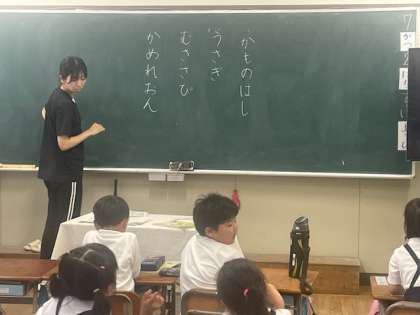 かものはし
うさぎ
むささび
かめれおん